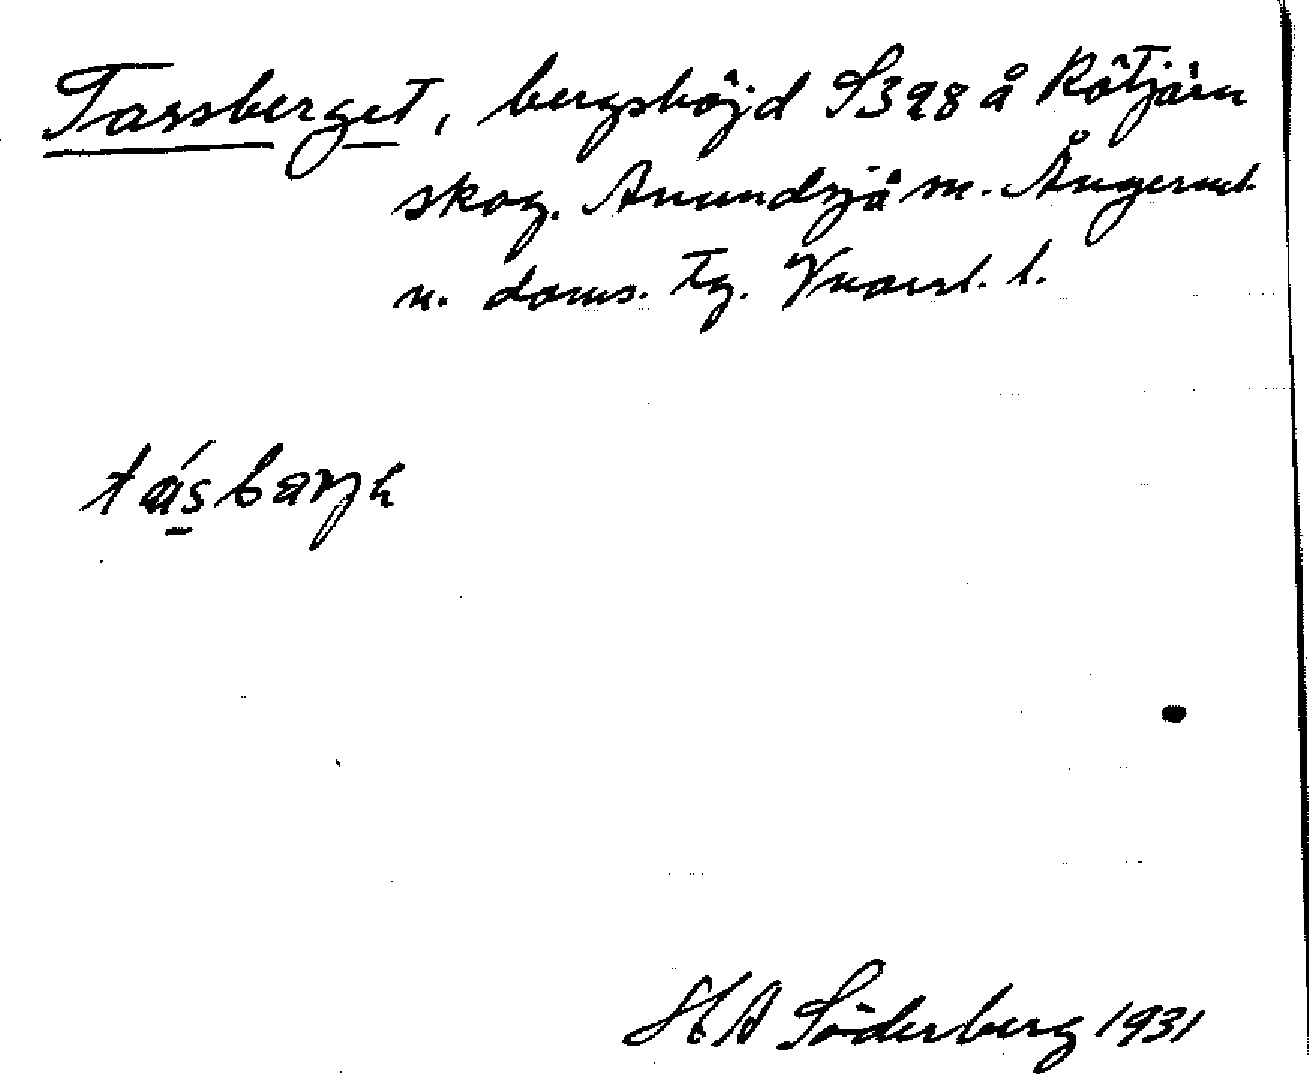 Tassberget, bergshöjd S398 å Rötjärn
skog. Anundsjö sn. Ångerml.
n. doms. tg. Vnorrl. l.
tásbarjh
HA Söderberg 1931